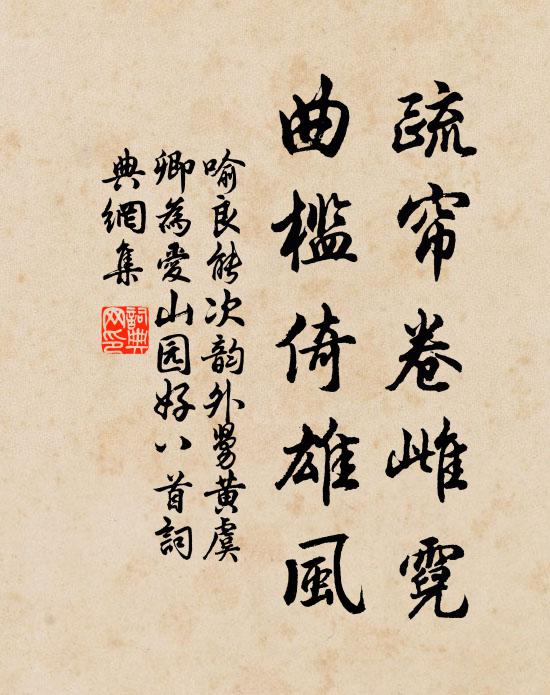 疏帘卷雌霓
曲檻倚雄風
喻良能次韵外舅黄虞
卿為愛山园好八首詞
典網集
詞典网印